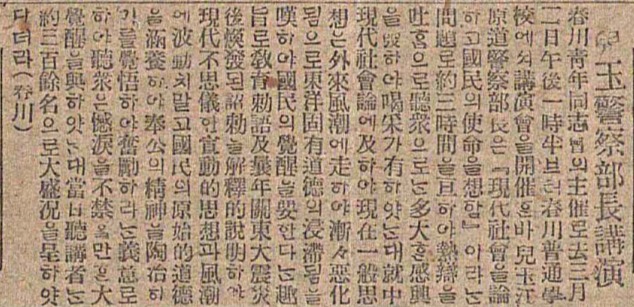 兒玉警察部長講演
春川靑年同志會의主催로去三月
二日午後一時半브터春川普通學
校에셔講演會을開催혼바兒玉江
原道警察部長은『現代社會을論
하고國民의使命을想함』이라는
問題로約三時間을亘하야熱辯을
吐홈으로聽衆으로는多大혼感興
을與하야喝采가有하얏는대就中
現代社會論에及하야現在一般思
想은外來風潮에走하야漸々惡化
됨으로東洋固有道德의浸滯됨을
嘆하야國民의覺醒을要한다는趣
旨로敎育勅語及曩年關東大震災
後煥發되詔勅을解釋的說明하야
現代不思儀한盲動的思想과風潮
에波動치말고國民의原始的道德
을涵養하야奉公의精神을陶冶하
기를覺悟하야奮勵하라는義意로
하야聽衆으로憾淚을不禁을만흔大
覺醒을與하얏는대當日聽講者는
約三百餘名으로大盛况을呈하얏
다더라(春川)